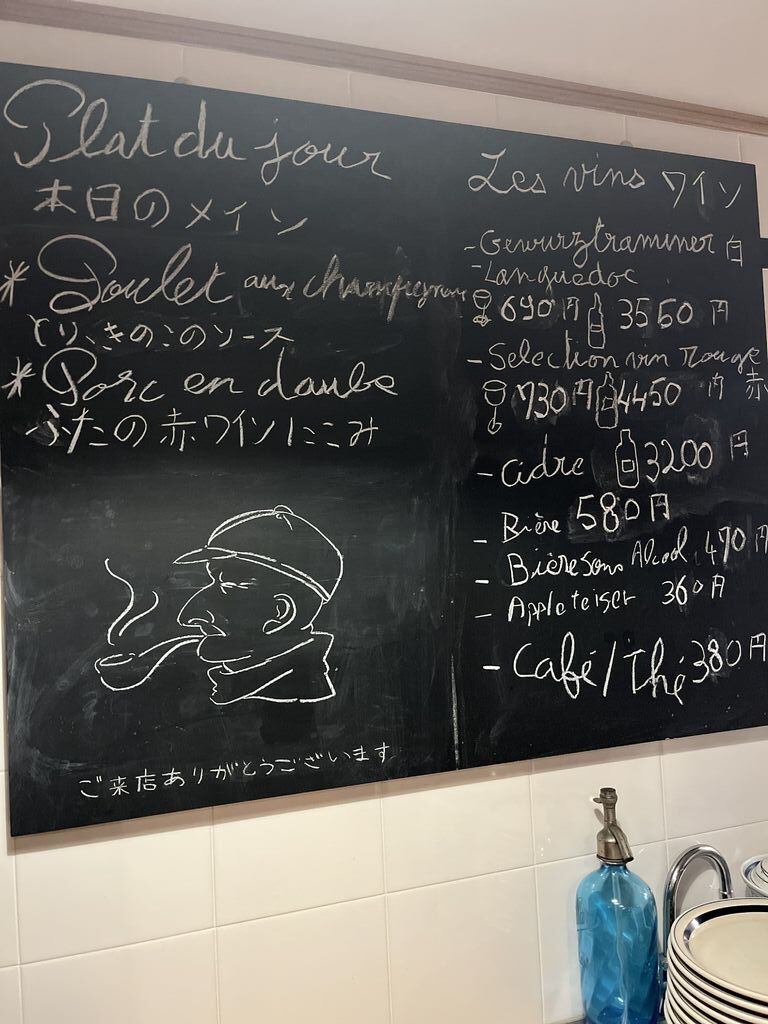 Plat du jour
本日のメイン
* Poulet aux champignons
とり、きのこのソース
* Porc en daube
ぶたの赤ワインにこみ
ご来店ありがとうございます
Les vins ワイン
- Gewurztraminer 白
- Languedoc
690円 3560円
- Selection vin rouge
730円 4450円 赤
- Cidre 3200円
- Bière 580円
- Bière sans Alcool 470円
- Appleteiser 360円
- Café / Thé 380円